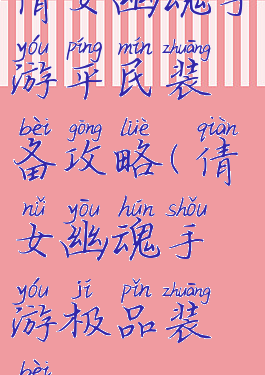 倩女幽魂手
yóu píng mín zhuāng
游平民装
bèi gōng lüè qiàn
备攻略(倩
nǚ yōu hún shǒu
女幽魂手
yóu jí pǐn zhuāng
游极品装
bèi